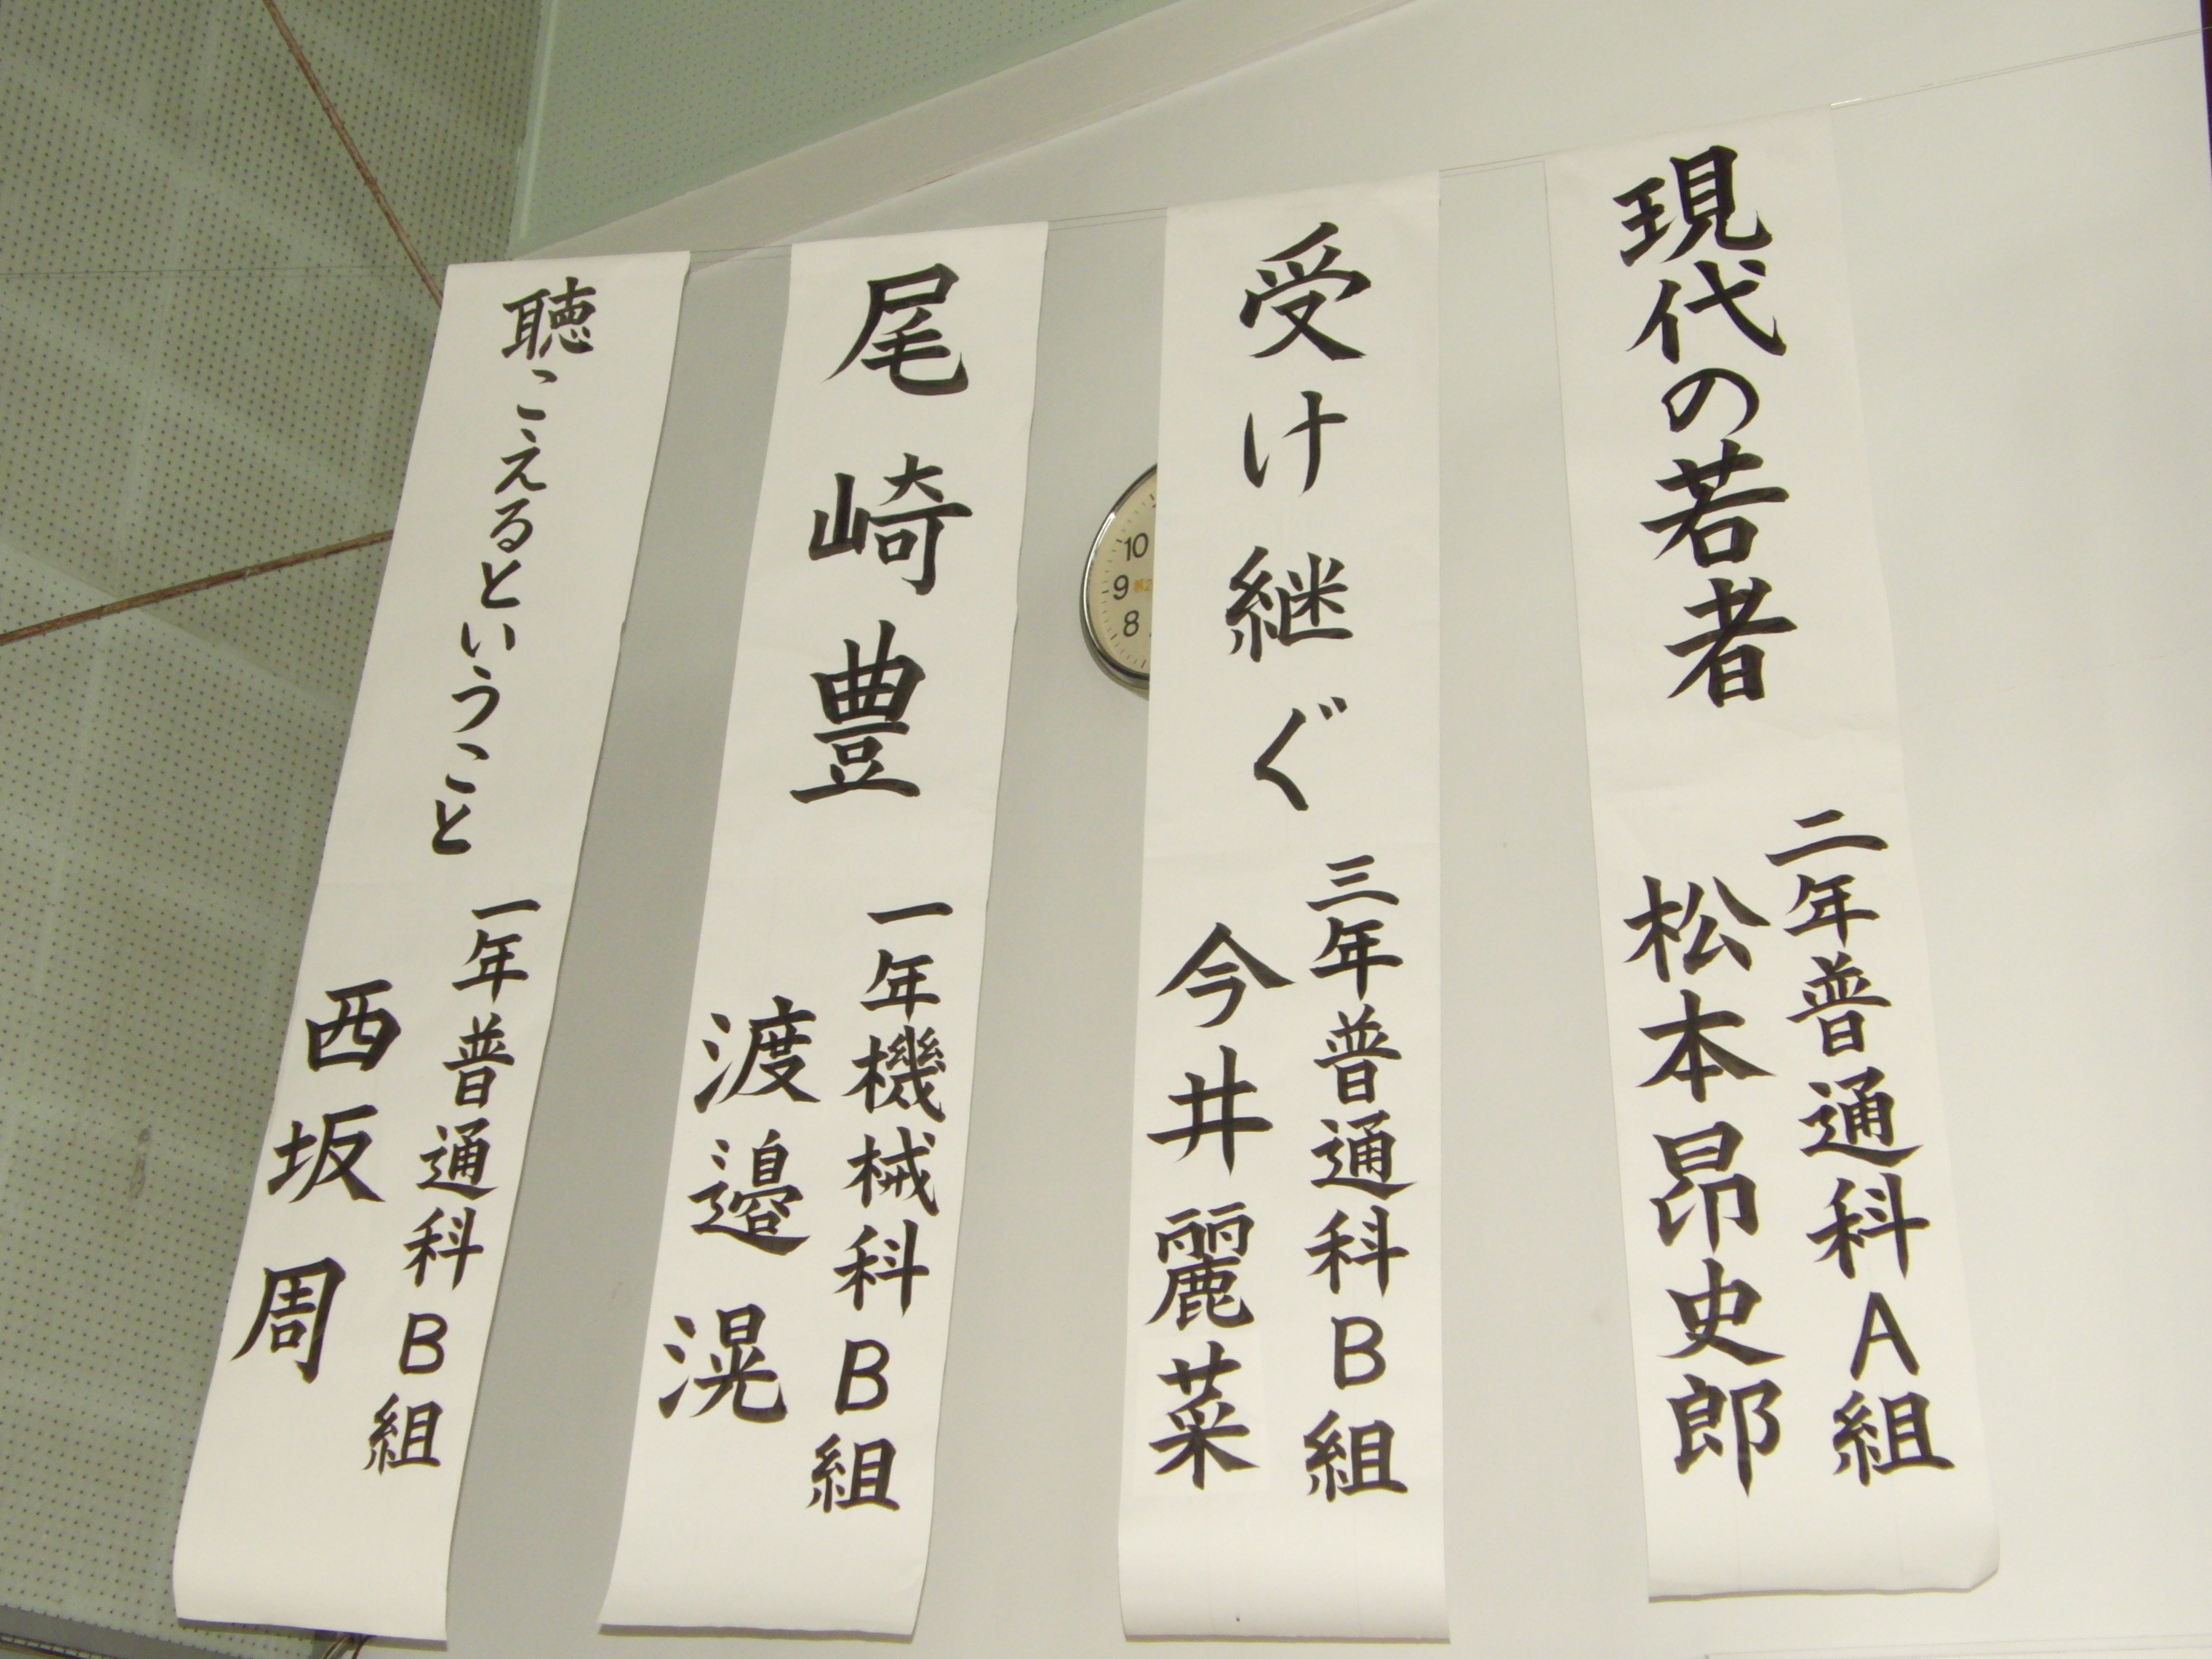 現代の若者
二年普通科A組
松本昂史郎
受け継ぐ
三年普通科B組
今井麗菜
尾崎豊
一年機械科B組
渡邉滉
聴こえるということ
一年普通科B組
西坂周
10
9
8